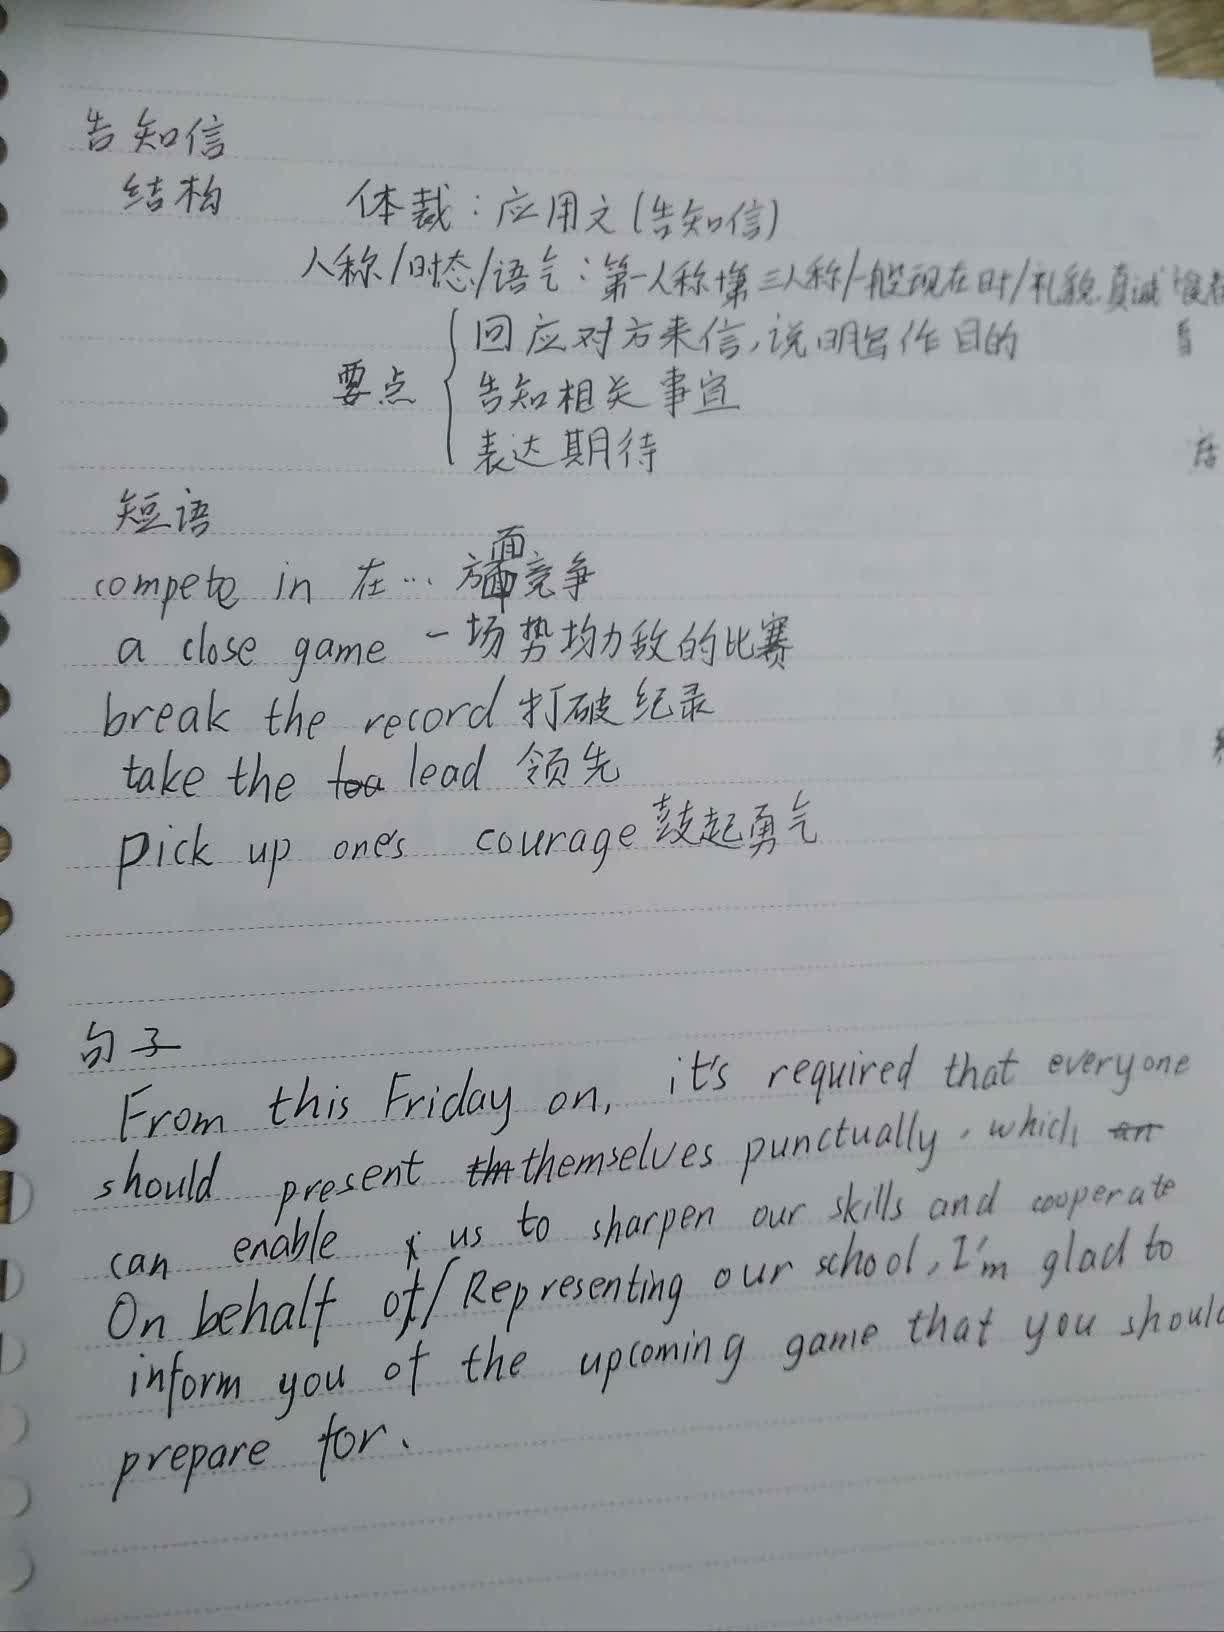 告知信
结构 体裁：应用文（告知信）
人称/时态/语气：第一人称+第三人称/一般现在时/礼貌、真诚
要点 回应对方来信，说明写作目的
告知相关事宜
表达期待
短语
compete in 在… 方面竞争
a close game 一场势均力敌的比赛
break the record 打破纪录
take the lead 领先
pick up one's courage 鼓起勇气
句子
From this Friday on, it's required that everyone
should present themselves punctually, which
can enable us to sharpen our skills and cooperate
On behalf of/Representing our school, I'm glad to
inform you of the upcoming game that you should
prepare for.